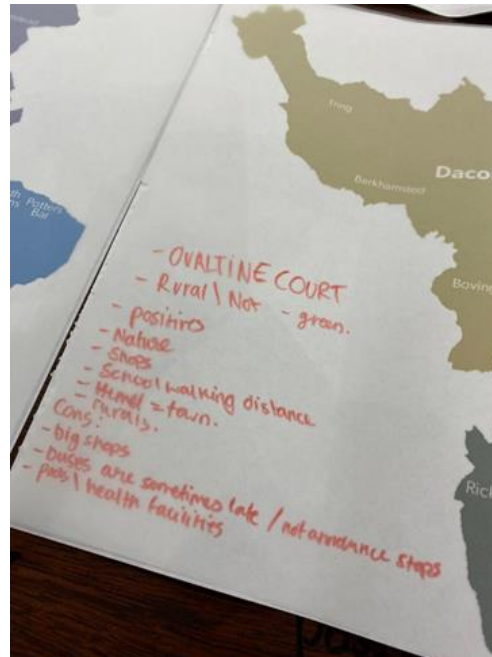 Tring
Daco
Berkhamsted
Potters
Bar
Boving
Rick
- OVALTINE COURT
- Rural \ Not - green.
- positives
- Nature
- Shops
- School walking distance
- Hemel = town.
- Rurals.
Cons:
- big shops
- buses are sometimes late / not announce stops
- \ health facilities